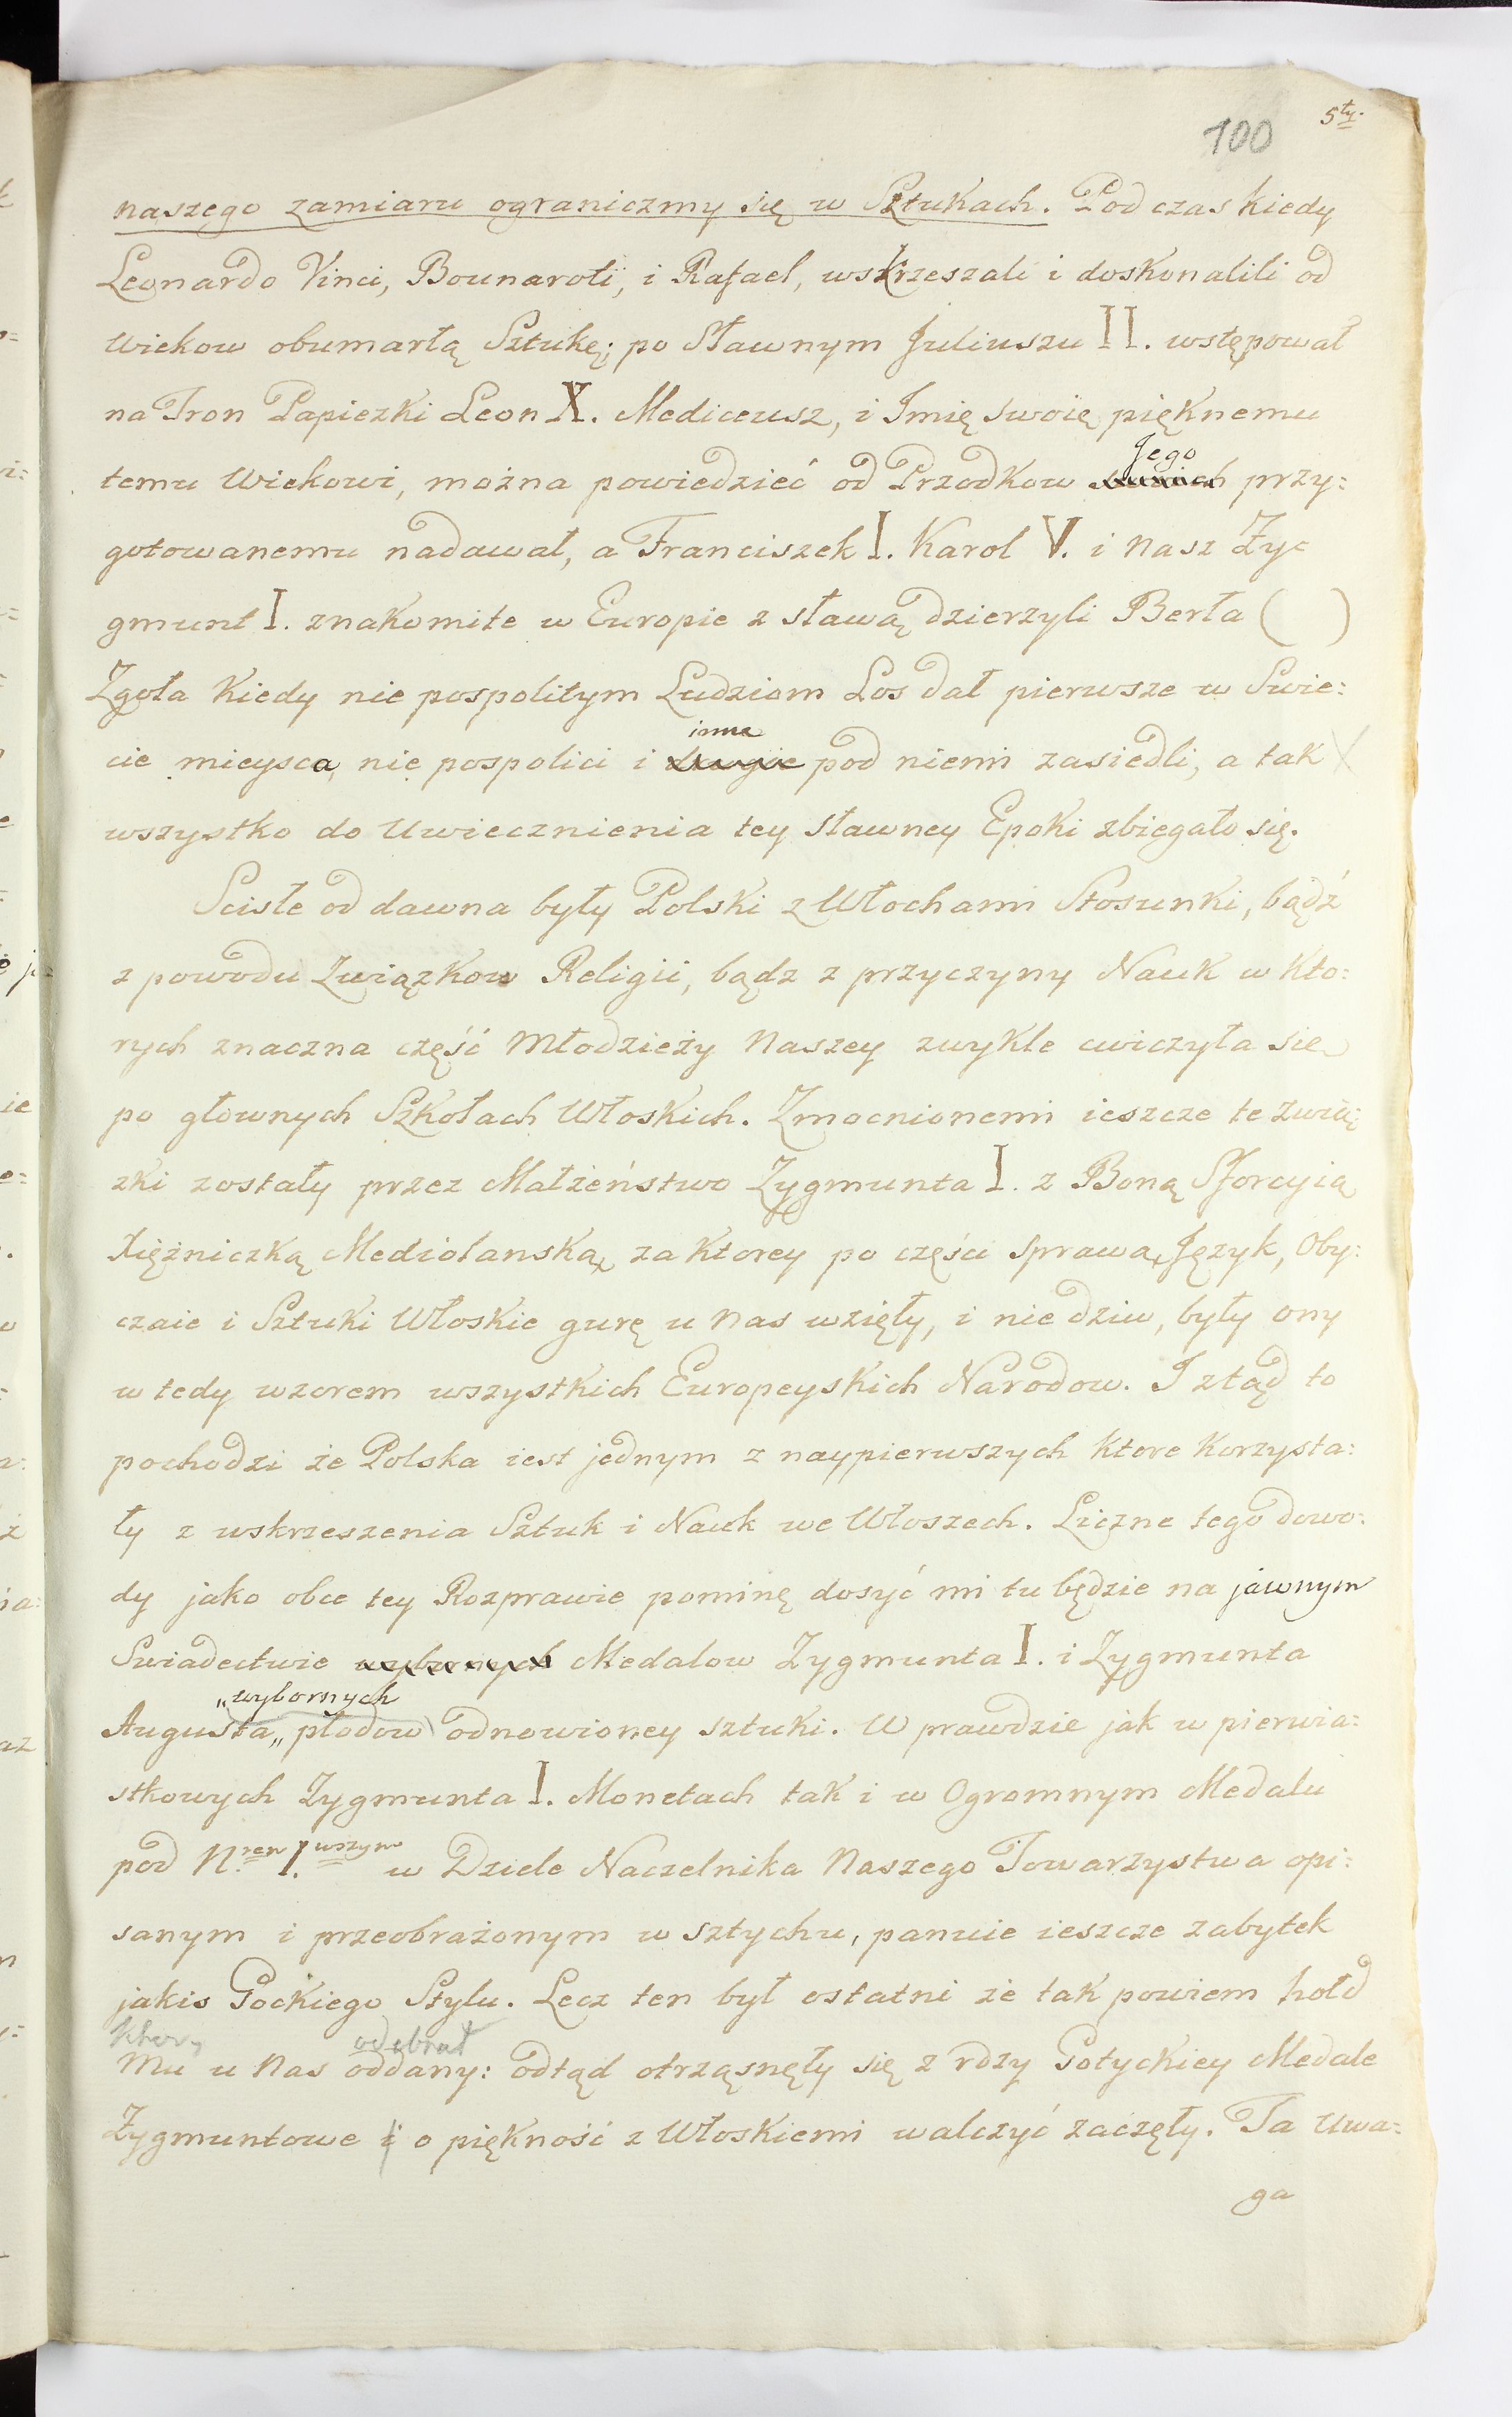 100 5ty.
naszego zamiaru ograniczmy się w Sztukach. Pod czas kiedy
Leonardo Vinci, Bounaroti, i Rafael, wskrzeszali i doskonalili od
wiekow obumarłą Sztukę; po Sławnym Juliuszu II. wstępował
na Tron Papiezki Leon X. Mediceusz, i Imię swoię pięknemu
Jego
temu Wiekowi, można powiedzieć od Przodkow swoich przy:
gotowanemu nadawał, a Franciszek I. Karol V. i nasz Zy:
gmunt I. znakomite w Europie z sławą dzierzyli Berła ( )
Zgoła kiedy nie pospolitym Ludziom Los dał pierwsze w Swie:
inne
cie mieysca, nie pospolici i drugie pod niemi zasiedli, a tak
wszystko do Uwiecznienia tey sławney Epoki zbiegało się.
Scisłe od dawna były Polski z Włochami Stosunki, bądź
z powodu Związkow Religii, bądz z przyczyny Nauk w kto:
rych znaczna część Młodzieży Naszey zwykle cwiczyła się
po głownych Szkołach Włoskich. Zmocnionemi ieszcze te zwią:
zki zostały przez Małzeństwo Zygmunta I. z Boną Sforcyią
Xiężniczką Mediolanską, za ktorey po części sprawą, Język, Oby:
czaie i Sztuki Włoskie gurę u nas wzięły, i nie dziw, były ony
w tedy wzorem wszystkich Europeyskich Narodow. I ztąd to
pochodzi że Polska iest jednym z naypierwszych ktore korzysta:
ły z wskrzeszenia Sztuk i Nauk we Włoszech. Liczne tego dowo:
dy jako obce tey Rozprawie pominę dosyć mi tu będzie na jawnym
Swiadectwie wybornych Medalow Zygmunta I. i Zygmunta
„wybornych
Augusta„ płodow odnowioney sztuki. W prawdzie jak w pierwia:
stkowych Zygmunta I. Monetach tak i w Ogromnym Medalu
pod N.rem I.wszym w Dziele Naczelnika Naszego Towarzystwa opi:
sanym i przeobrażonym w sztychu, panuie ieszcze zabytek
jakis Gockiego Stylu. Lecz ten był ostatni że tak powiem hołd
ktory odebrał
Mu u Nas oddany: odtąd otrząsnęły się z rdzy Gotyckiey Medale
Zygmuntowe i o piękność z Włoskiemi walczyć zaczęły. Ta Uwa:
ga